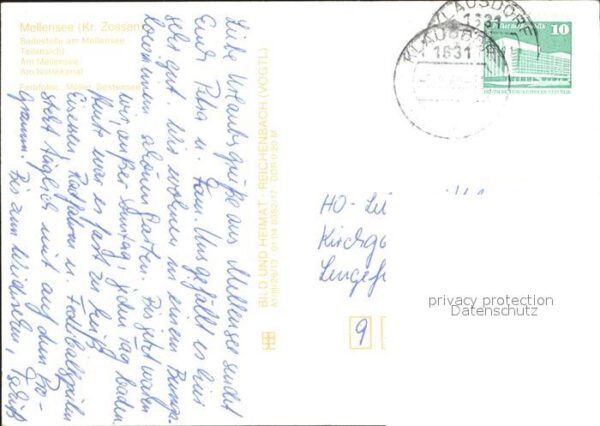 Mellensee (Kr. Zossen)
Badestelle am Mellensee
Teilansicht
Am Mellensee
Am Nottekanal
Farbfotos: Müller, Bestensee
Liebe Urlaubsgrüße aus Mellensee sendet
Euch Petra u. Fam. Uns gefällt es hier
sehr gut. Wir wohnen in einem Bunga-
low mit schönen Garten. Bis jetzt waren
wir, außer Sonntag, jeden Tag baden.
Heute war es fast zu heiß.
Radfahren u. Federballspielen
steht täglich mit auf dem Pro-
gramm. Bis zum Wiedersehn,
BILD UND HEIMAT · REICHENBACH (VOGTL)
A1/B/26/12 01 14 0352/17 DDR 0,20 M
KLAUSDORF
1631
KLAUSDORF
1631
10
DEUTSCHE DEMOKRATISCHE REPUBLIK
HO-
Kirchg
Lengef
9
privacy protection
Datenschutz